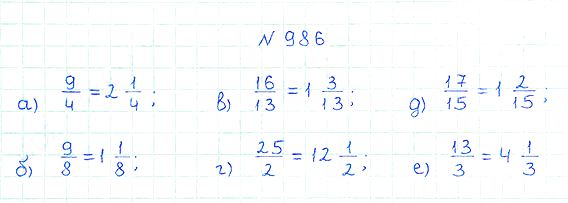 N 986
а) 9/4 = 2 1/4; в) 16/13 = 1 3/13; д) 17/15 = 1 2/15;
б) 9/8 = 1 1/8; г) 25/2 = 12 1/2; е) 13/3 = 4 1/3